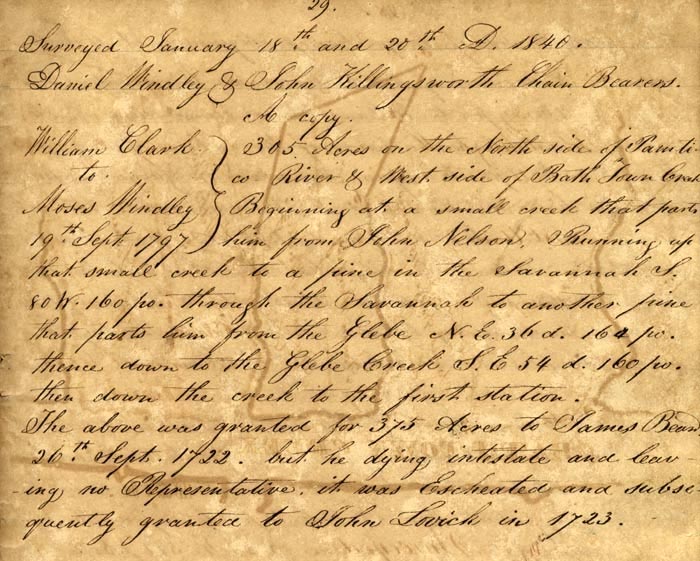 29.
Surveyed January 18th and 20th A.D. 1840.
Daniel Windley & John Killingsworth Chain Bearers.
A copy.
William Clark 305 Acres on the North side of Pamti-
to co River & West side of Bath Town Creek
Moses Windley Beginning at a small creek that parts
19th Sept. 1797 him from John Nelson. Running up
that small creek to a pine in the Savannah S.
80 W. 160 po. through the Savannah to another pine
that parts him from the Glebe N. E. 36 d. 164 po.
thence down to the Glebe Creek S. E 54 d. 160 po.
then down the creek to the first station.
The above was granted for 375 Acres to James Beard
26th Sept. 1722. but he dying intestate and leav-
-ing no Representative. it was Escheated and subse
quently granted to John Lovick in 1723.